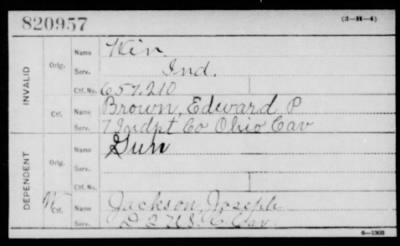 820957
(3-H-4)
INVALID
Orig.
Name Win
Serv. Ind.
Ctf. No. 657,210
Ctf.
Name Brown, Edward P
Serv. 7 Indpt Co Ohio Cav
DEPENDENT
Orig.
Name Gun
Serv.
Ctf. No.
Ctf.
Name Jackson, Joseph
Serv.
6-1308